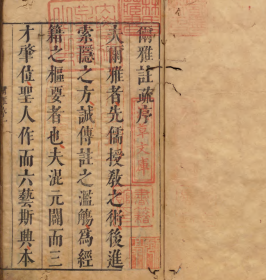 爾雅註疏序
夫爾雅者先儒授敎之術後進
索隱之方誠傳註之濫觴爲經
籍之樞要者也夫混元闢而三
才肇位聖人作而六藝斯興本